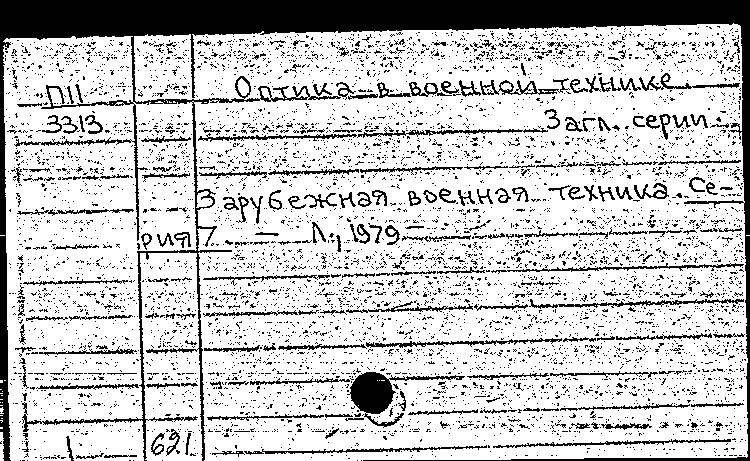 П11 Оптика в военной технике.
3313. Загл. серии:
Зарубежная военная техника. Се-
рия 7. — Л., 1979 —
1 621